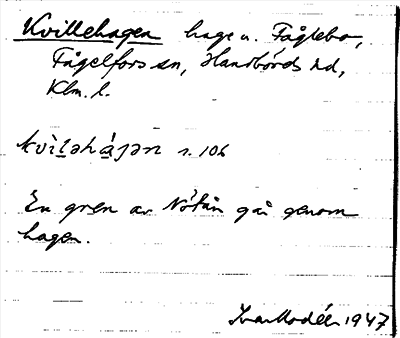 Kvillehagen hage u. Fåglebo,
Fågelfors sn, Handbörds hd,
Klm. l.
kvìləhá̱jən s. 106
En gren av Nötån går genom
hagen.
Ivar Modéer 1947